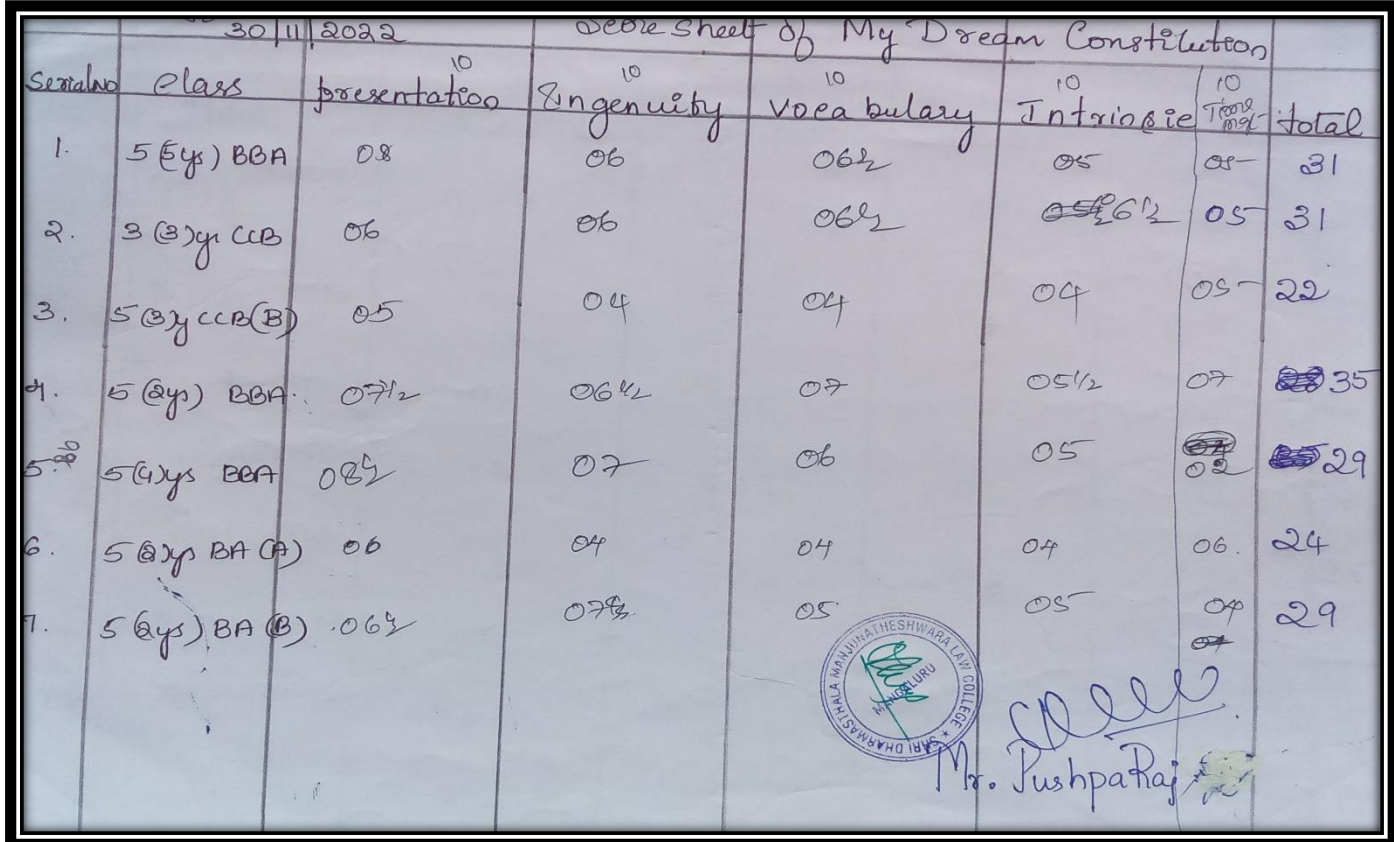 30/11/2022 Score Sheet of My Dream Constitution
10 10 10 10 10
Serial No class presentation Ingenuity Vocabulary Intrinsic Time mgt total
1. 5 (5ys) BBA 08 06 06½ 05 05 31
2. 3 (3)yr CCB 06 06 06½ 6½ 05 31
3. 5 (3)y CCB(B) 05 04 04 04 05 22
4. 5 (2ys) BBA 07½ 06½ 07 05½ 07 35
5. 5 (4)ys BBA 08½ 07 06 05 02 29
6. 5 (2)ys BA (A) 06 04 04 04 06. 24
7. 5 (2ys) BA (B) 06½ 07½ 05 05 04 29
SHRI DHARMASTHALA MANJUNATHESHWARA LAW COLLEGE ★
MANGALURU
Mr. PushpaRaj